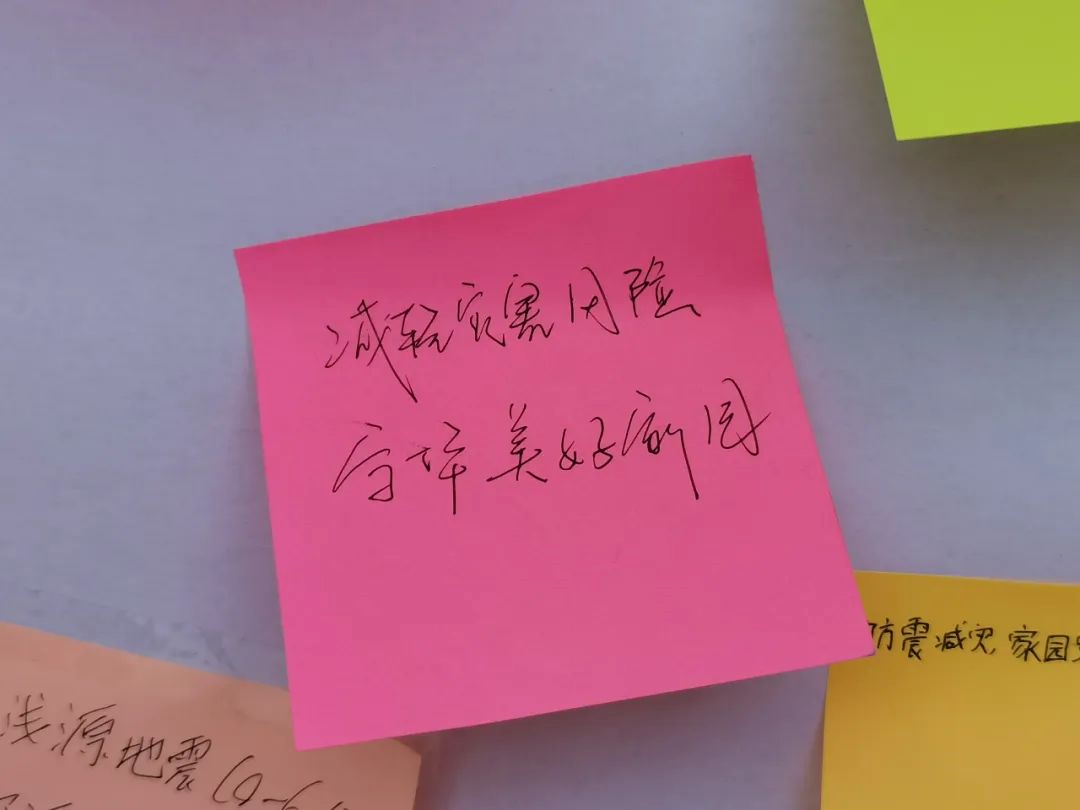 减轻灾害风险
守护美好家园
防震减灾 家园
浅源地震(0-6